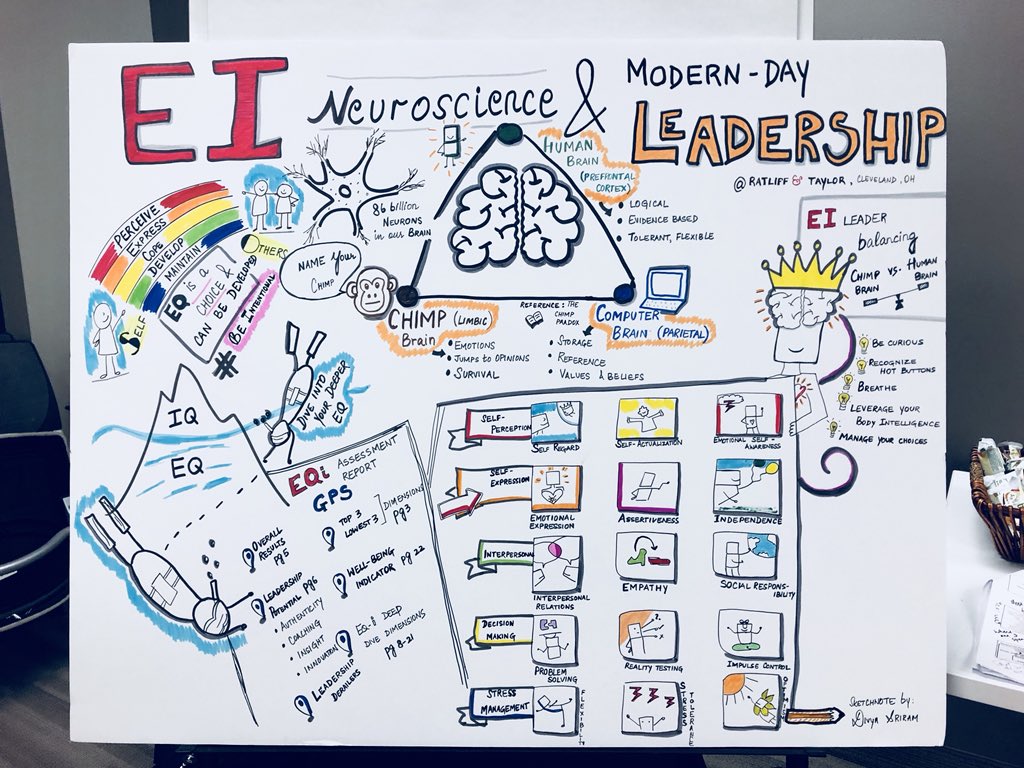 EI
Neuroscience &
MODERN-DAY
LEADERSHIP
@ RATLIFF & TAYLOR, CLEVELAND, OH
PERCEIVE
EXPRESS
COPE
DEVELOP
MAINTAIN
SELF
OTHERS
EQ is a
CHOICE &
CAN BE DEVELOPED
# BE INTENTIONAL
86 billion
NEURONS
in our BRAIN
NAME your
CHIMP
HUMAN
BRAIN
(PREFRONTAL
CORTEX)
• LOGICAL
• EVIDENCE BASED
• TOLERANT, FLEXIBLE
CHIMP (LIMBIC)
Brain
• EMOTIONS
• JUMPS TO OPINIONS
• SURVIVAL
REFERENCE: THE
CHIMP
PARADOX
COMPUTER
BRAIN (PARIETAL)
• STORAGE
• REFERENCE
• VALUES & BELIEFS
EI LEADER
balancing
CHIMP VS. HUMAN
BRAIN BRAIN
BE CURIOUS
RECOGNIZE
HOT BUTTONS
BREATHE
LEVERAGE YOUR
BODY INTELLIGENCE
MANAGE YOUR CHOICES
IQ
EQ
DIVE INTO
YOUR DEEPER
EQ
EQi ASSESSMENT
REPORT
GPS
OVERALL
RESULTS
pg 5
TOP 3
LOWEST 3
DIMENSIONS
pg 3
LEADERSHIP
POTENTIAL pg 6
• AUTHENTICITY
• COACHING
• INSIGHT
• INNOVATION
WELL-BEING
INDICATOR pg 22
EQ-i DEEP
DIVE DIMENSIONS
pg 8-21
LEADERSHIP
DERAILERS
SELF-
PERCEPTION
SELF REGARD
SELF-ACTUALIZATION
EMOTIONAL SELF-
AWARENESS
SELF-
EXPRESSION
EMOTIONAL
EXPRESSION
ASSERTIVENESS
INDEPENDENCE
INTERPERSONAL
INTERPERSONAL
RELATIONS
EMPATHY
SOCIAL RESPONS-
IBILITY
DECISION
MAKING
PROBLEM
SOLVING
REALITY TESTING
IMPULSE CONTROL
STRESS
MANAGEMENT
FLEXIBILITY
STRESS
SKETCHNOTE by:
Divya Sriram